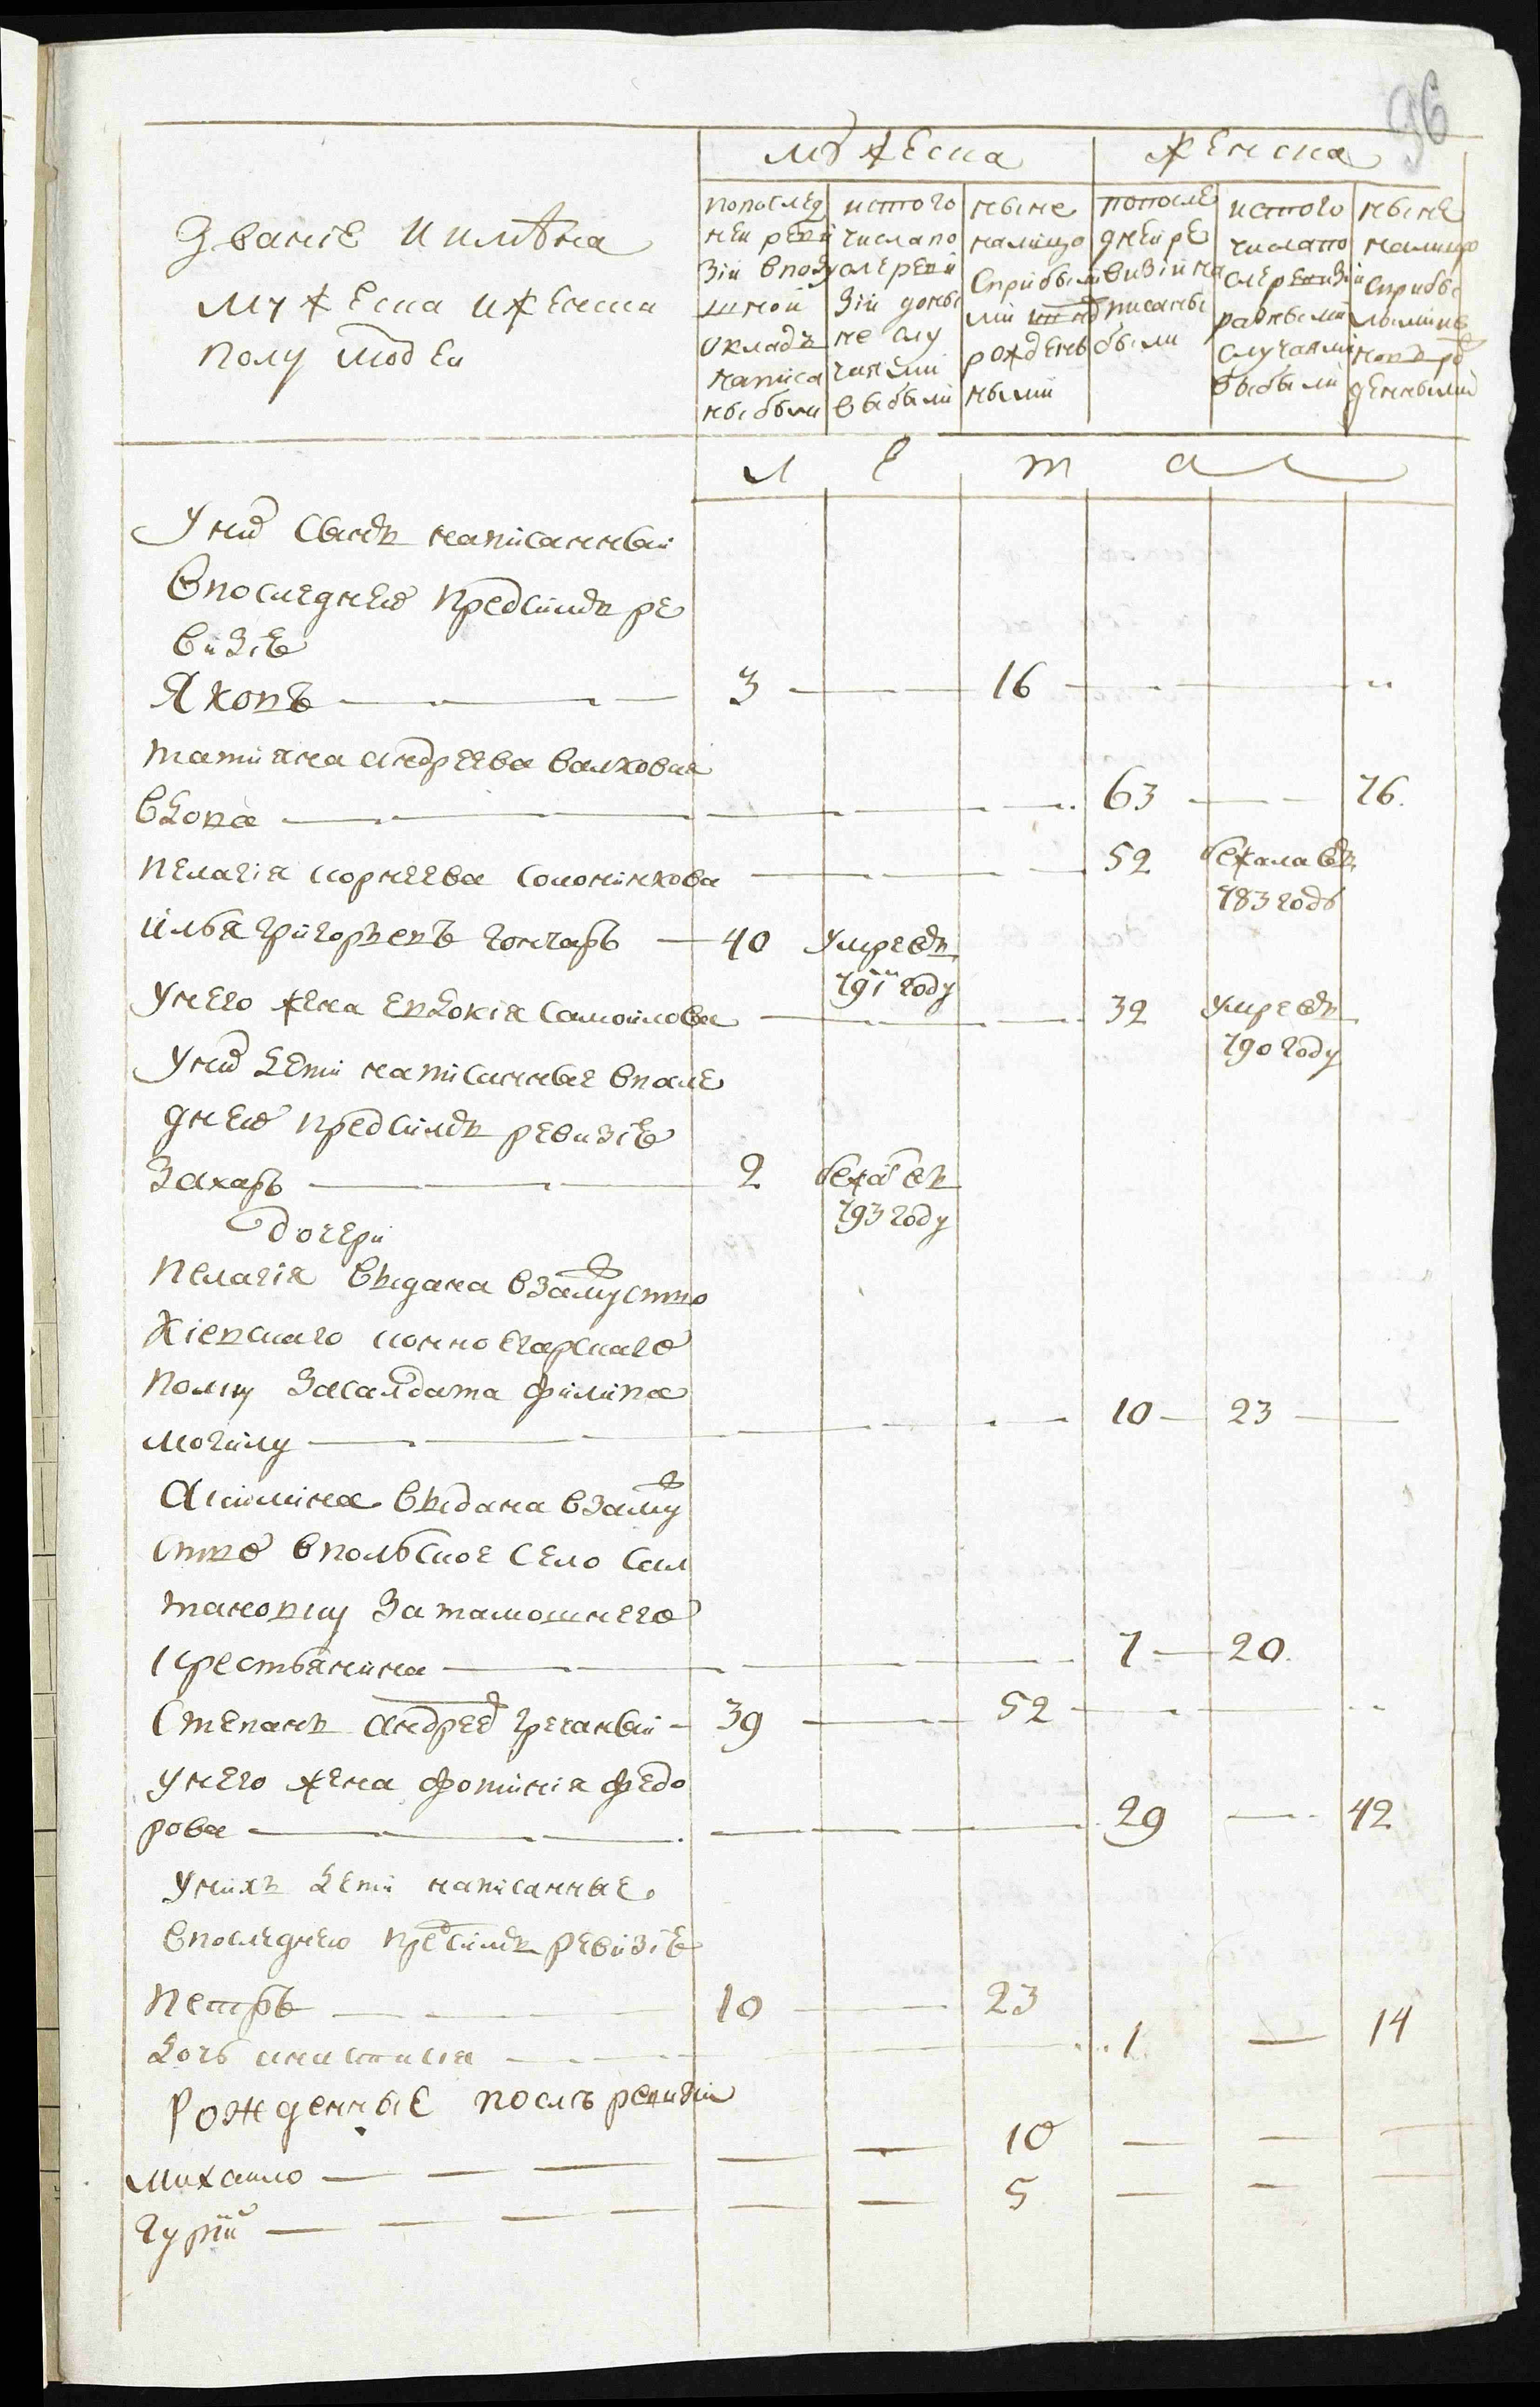 96
мужеска женска
званіе и имѣна
мужеска и женска
полу людей
попослед
ней реви
зіи вподу
шной
окладъ
написа
ны были
истого
числа по
сле реви
зіи доны
не слу
чаями
выбыли
ныне
налицо
сприбыли
ми и нов
рожденъ
ными
попосле
дней ре
визіи на
писаны
были
истого
числапо
слеревизіи
разными
случаями
выбыли
ныне
налицо
сприбы
лыми не
новъ ро
денными
л ѣ т а
Унихъ сынъ написанный
впоследнею предсимъ ре
визіе
Яковъ 3 16
татияна андреева валховая
вдова 63 76.
пелагія корнеева солонинкова 52 бежала въ
783 годъ
илья григорьевъ гончаръ 40 умре въ
791 году
унего жена евдокія самойлова 32 умре въ
790 году
Унихъ дети написанные впосле
днею предсимъ ревизіе
Захаръ 2 бежал въ
793 году
дочери
пелагія выдана взамуство
кіевскаго конно егарскаго
полку засалдата филипа
могилу 10 23
Акилина выдана взаму
ство впольское село сал
тановку затамошнего
крестьянина 7 20.
Степанъ андреев гречаный 39 52
унего жена фотинія федо
рова 29 42
унихъ дети написанные
впоследнею предсимъ ревизіе
петръ 10 23
дочь анастасія 1 14
Рожденные послъ ревизіи
михаило 10
гурій 5